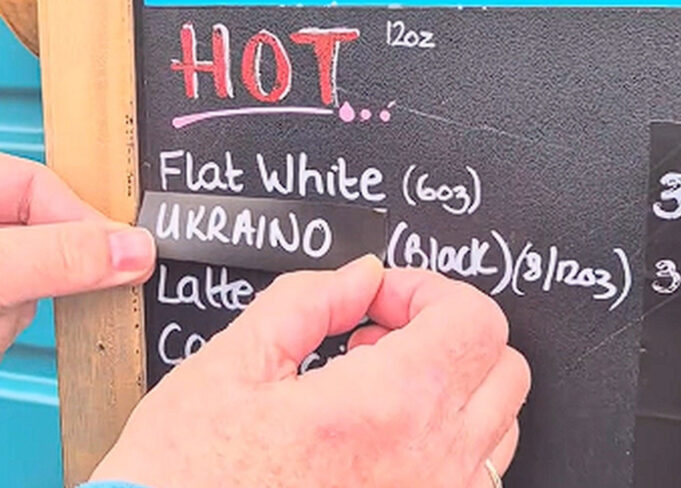 HOT 12oz
Flat White (6oz) 3
UKRAINO (Black) (8/12oz) 3
Latte